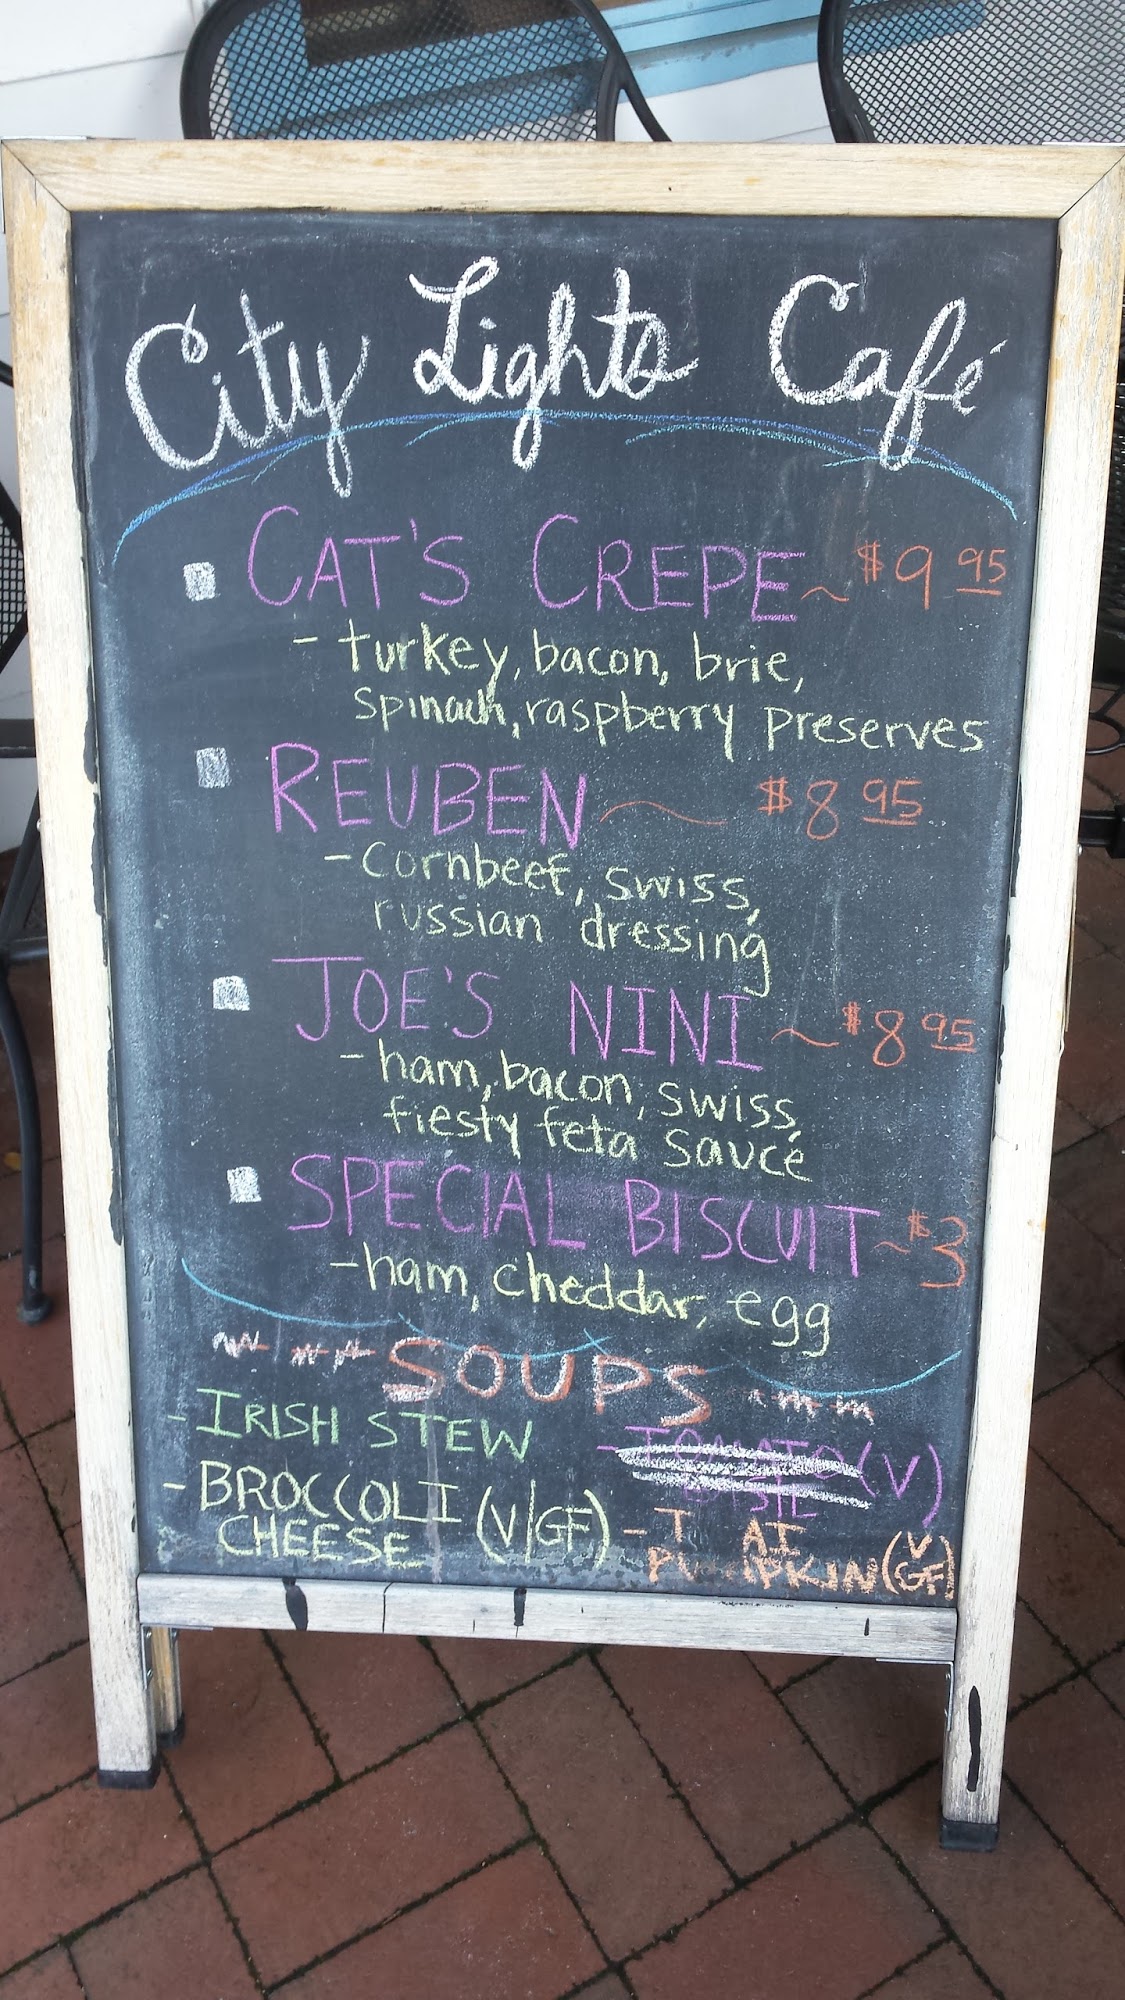 City Lights Café
CAT'S CREPE ~ $9 95
- turkey, bacon, brie,
spinach, raspberry preserves
REUBEN ~ $8 95
- cornbeef, swiss,
russian dressing
JOE'S NINI ~ $8 95
- ham, bacon, swiss,
fiesty feta sauce
SPECIAL BISCUIT ~ $3
- ham, cheddar, egg
SOUPS
- IRISH STEW
- TOMATO (V)
BASIL
- BROCCOLI (V/GF)
CHEESE
- T AI
PUMPKIN (V GF)